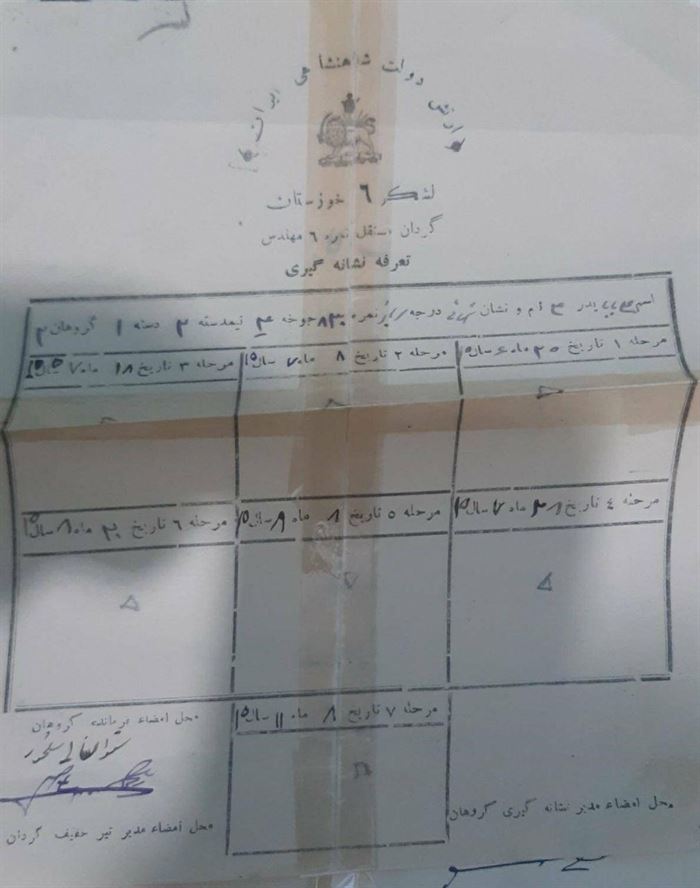 ارتش دولت شاهنشاهی ایران
لشکر ٦ خوزستان
گردان مستقل نمره ٦ مهندس
تعرفه نشانه گیری
اسم پدر نام و نشان درجه نمره ۸۳۰ جوخه ۴ نیمدسته ۲ دسته ۱ گروهان ۲
مرحله ۱ تاریخ ۲۵ ماه ۶ سال ۱۵
مرحله ۲ تاریخ ۸ ماه ۷ سال ۱۵
مرحله ۳ تاریخ ۱۸ ماه ۷ سال ۱۵
مرحله ٤ تاریخ ۲۸ ماه ۷ سال ۱۵
مرحله ٥ تاریخ ۸ ماه ۹ سال ۱۵
مرحله ٦ تاریخ ۲۰ ماه ۸ سال ۱۵
مرحله ۷ تاریخ ۸ ماه ۱۱ سال ۱۵
محل امضاء فرمانده گروهان
محل امضاء مدیر نشانه گیری گروهان
محل امضاء مدیر تیر خفیف گردان